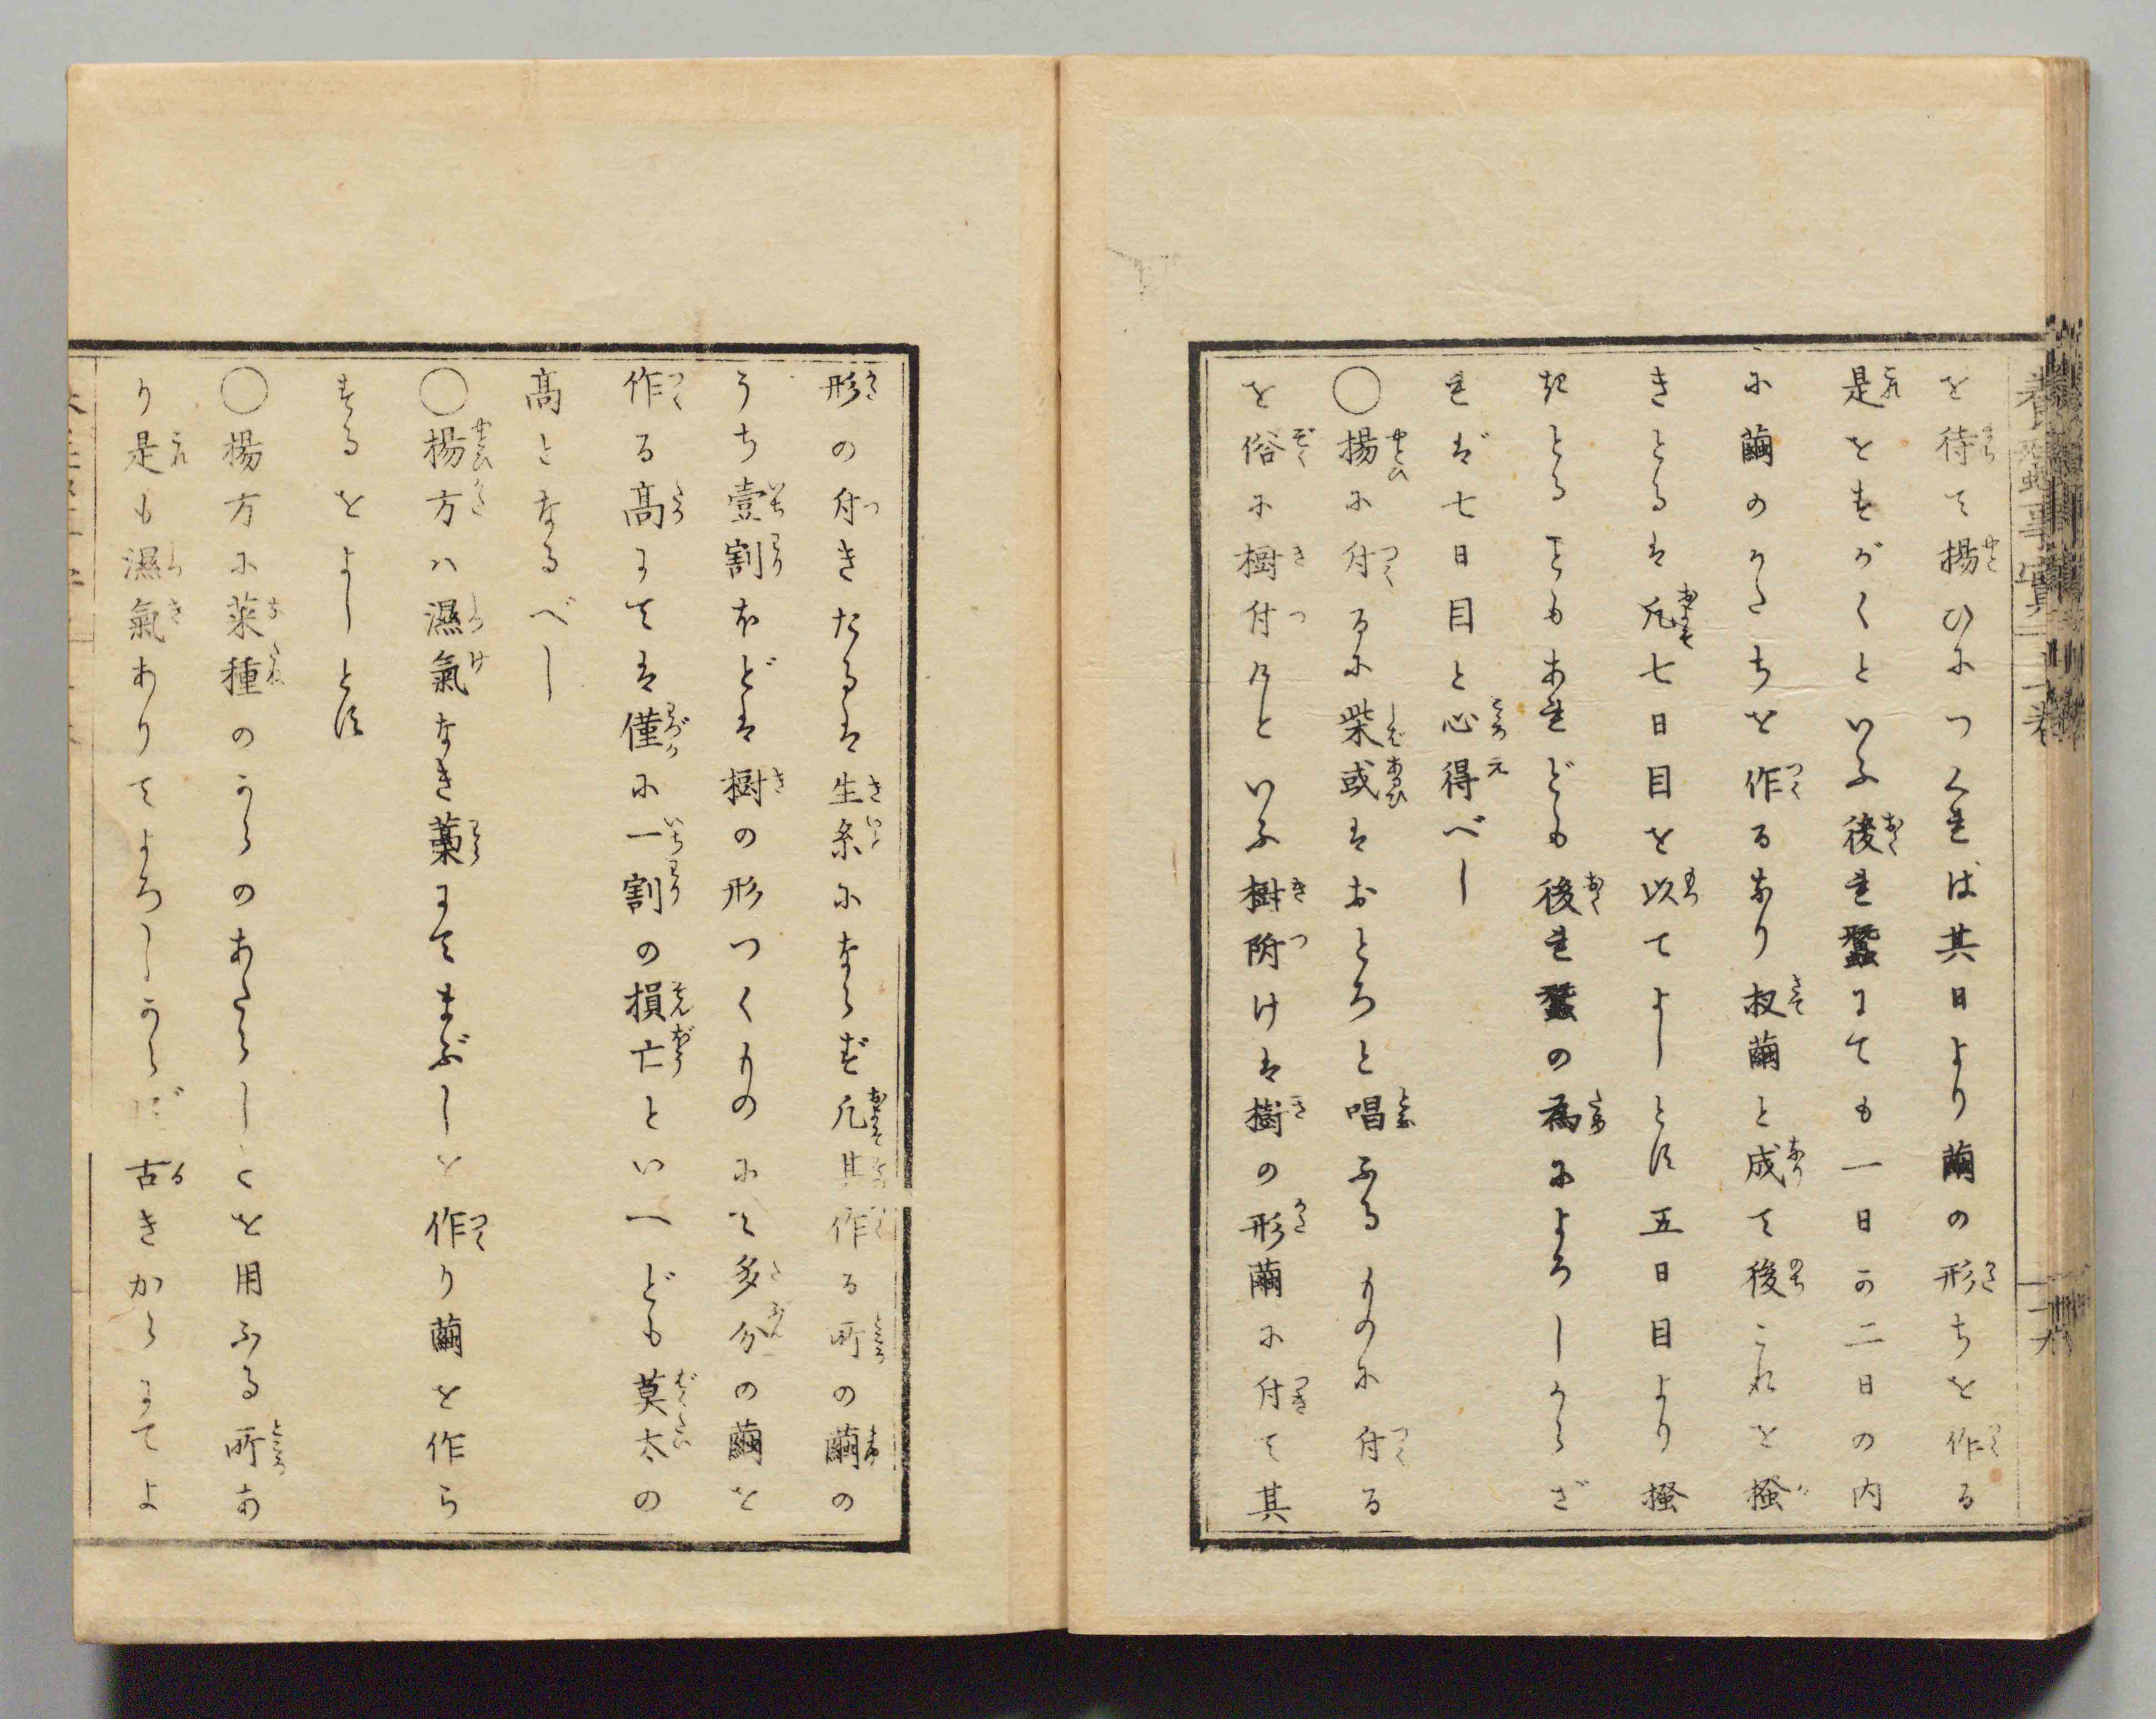 を待て揚ひにつくれば其日より繭の形ちを作る
是をすがくといふ後れ蚕にても一日か二日の内
に繭のかたちを作るなり扨繭と成て後これを掻
きとるは凡七日目を以てよしとす五日目より掻
きとることもあれども後れ蚕の為によろしからざ
れば七日目と心得べし
〇揚に付るに柴或はおとろと唱ふるものに付る
を俗に樹付けといふ樹附けは樹の形繭に付て其
形の付きたるは生糸にならず凡其作る所の繭の
うち壹割ほどは樹の形つくものにて多分の繭を
作る高にては僅に一割の損亡といへども莫太の
高となるべし
〇揚方ハ濕氣なき藁にてまぶしを作り繭を作ら
するをよしとす
〇揚方に菜種のからのあたらしくを用ふる所あ
り是も濕氣ありてよろしからず古きからにてよ